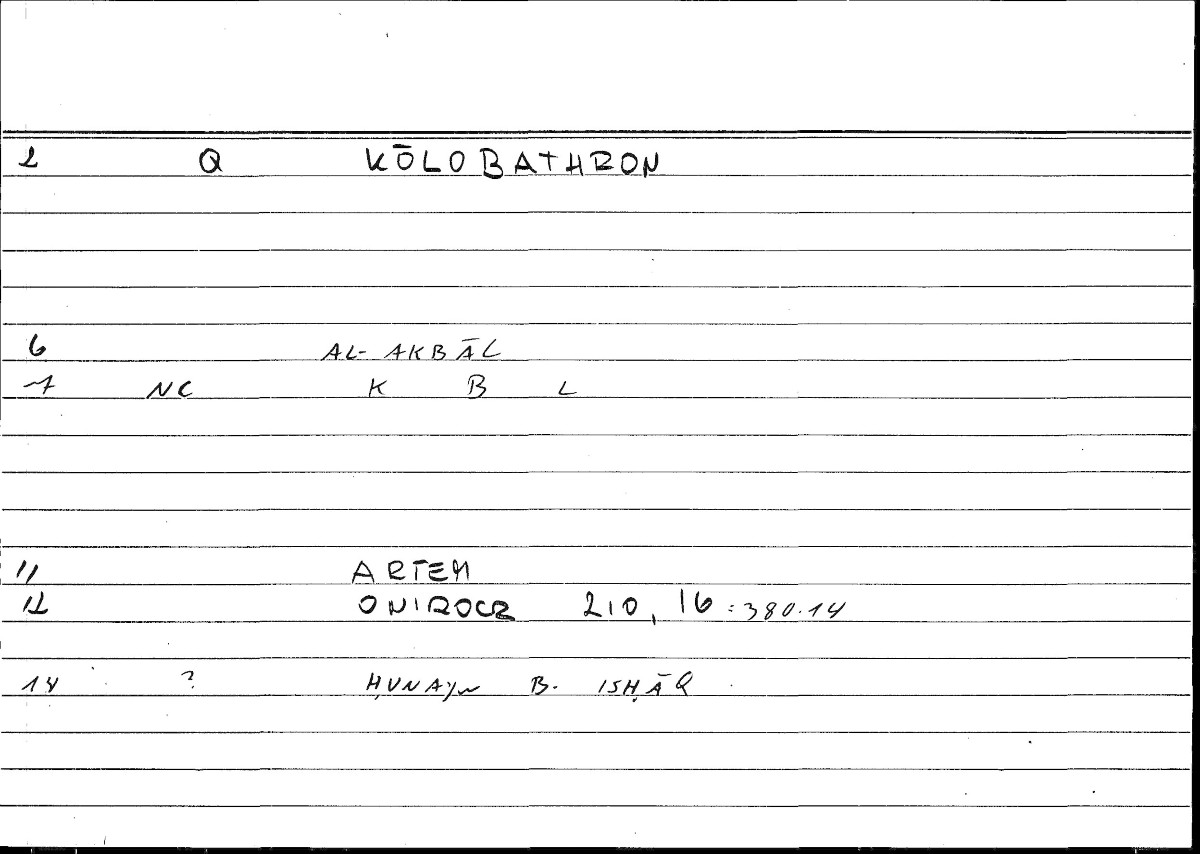 2 Q KŌLOBATHRON
6 AL-AKBĀL
7 NC K B L
11 ARTEM
12 ONIROCR 210, 16 : 380.14
14 ? ḤUNAYN B. ISḤĀQ